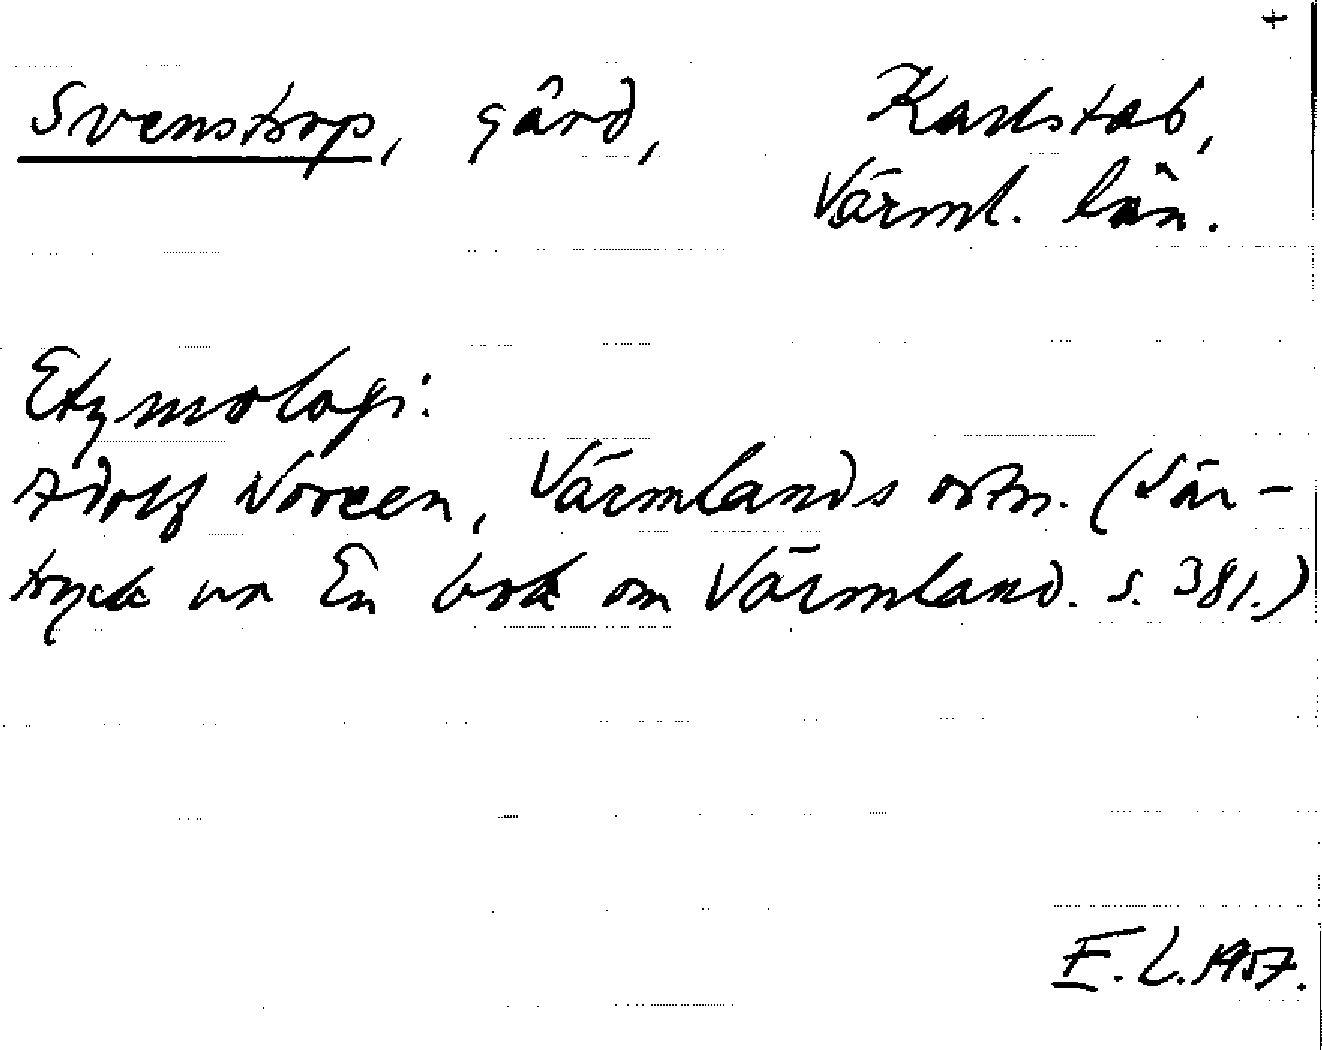 +
Svenstorp, gård, Karlstad,
Värml. län.
Etymologi:
Adolf Noreen, Värmlands ortn. (Sär-
tryck ur En bok om Värmland. s. 381.)
E. L. 1957.